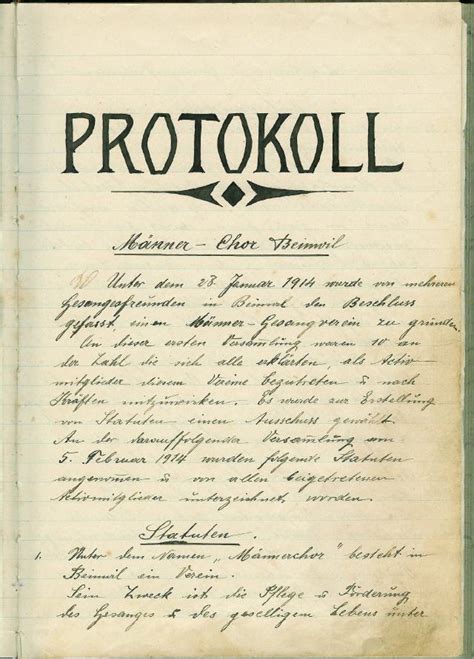 PROTOKOLL
Männer - Chor Beinwil
Unter dem 28. Januar 1914 wurde von mehreren
Gesangesfreunden in Beinwil den Beschluss
gefasst, einen Männer-Gesangverein zu gründen.
An dieser ersten Versamlung waren 10 an
der Zahl die sich alle erklärten, als Activ-
mitglieder diesem Vereine beizutreten u nach
Kräften mitzuwirken. Es wurde zur Erstellung
von Statuten einen Ausschuss gewählt.
An der darauffolgender Versamlung am
5. Februar 1914 wurden folgende Statuten
angenommen u von allen beigetretenen
Activmitglieder unterzeichnet worden.
Statuten.
1. Unter dem Namen „Männerchor" besteht in
Beinwil ein Verein.
Sein Zweck ist die Pflege u Förderung
des Gesanges u des geselligen Lebens unter